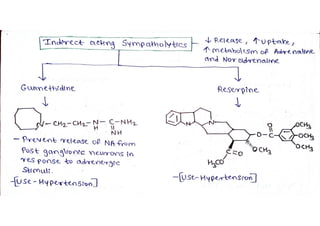 Indirect acting Sympatholytics - ↓ Release, ↑ Uptake,
↑ metabolism of Adrenaline
and Noradrenaline
Guanethidine
Reserpine
N - CH₂ - CH₂ - N - C - NH₂
H
NH
- Prevent release of NA from
Post ganglionic neurons in
response to adrenergic
Stimuli.
- [Use - Hypertension]
N
H
N
H
H
O - C
O
OCH₃
OCH₃
OCH₃
OCH₃
C = O
H₃CO
- [Use - Hypertension]